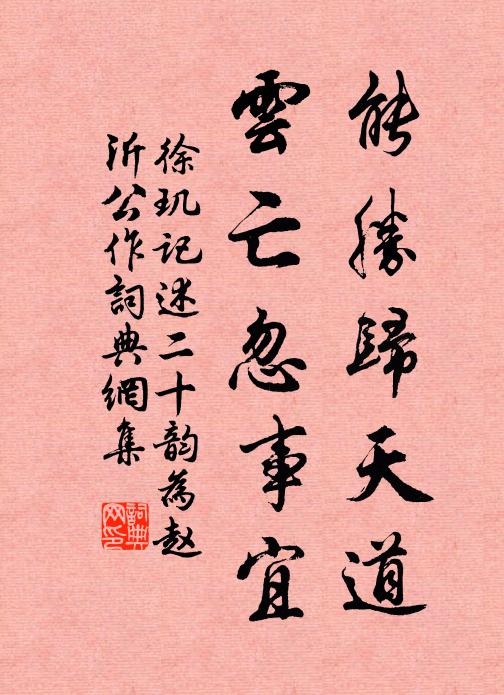 能勝歸天道
雲亡忽事宜
徐玑記述二十韵為赵
沂公作詞典網集
詞典網印